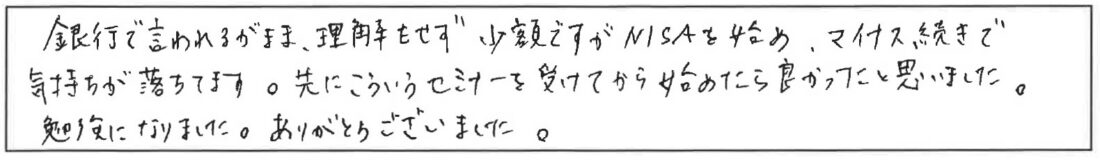 銀行で言われるがまま、理解もせず少額ですがNISAを始め、マイナス続きで
気持ちが落ちてます。先にこういうセミナーを受けてから始めたら良かったと思いました。
勉強になりました。ありがとうございました。